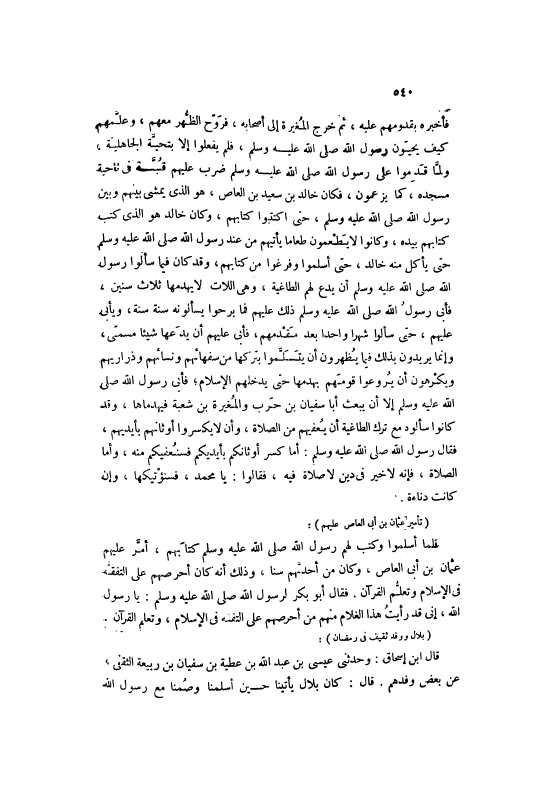 ٥٤٠
فأخبره بقدومهم عليه ، ثم خرج المُغيرة إلى أصحابه ، فروّح الظَّهر معهم ، وعلَّمهم
كيف يحيّون رسول الله صلى الله عليـــه وسلم ، فلم يفعلوا إلا بتحيَّة الجاهلية ،
ولمَّا قدَموا على رسول الله صلى الله عليـــه وسلم ضرب عليهم قُبَّـة فى ناحية
مسجده ، كما يزعمون ، فكان خالد بن سعيد بن العاص ، هو الذى يمشى بينهم وبين
رسول الله صلى الله عليه وسلم ، حتى اكتتبوا كتابهم ، وكان خالد هو الذى كتب
كتابهم بيده ، وكانوا لايَطْعمون طعاما يأتيهم من عند رسول الله صلى الله عليه وسلم
حتى يأكل منه خالد ، حتى أسلموا وفرغوا من كتابهم ، وقد كان فيما سألوا رسول
الله صلى الله عليه وسلم أن يدع لهم الطاغية ، وهى اللات لايهدمها ثلاث سنين ،
فأبى رسولُ الله صلى الله عليه وسلم ذلك عليهم فما برحوا يسألونه سنة سنة ، ويأبى
عليهم ، حتى سألوا شهرا واحدا بعد مَقْدمهم ، فأبى عليهم أن يدَعها شيئا مسمّى ،
وإنما يريدون بذلك فيما يُظهرون أن يتسلَّموا بتركها من سفهائهم ونسائهم وذراريهم
ويكْرهون أن يُروعوا قومَهم بهدمها حتى يدخلهم الإسلام ؛ فأبى رسول الله صلى
الله عليه وسلم إلا أن يبعث أبا سفيان بن حَرب والمُغيرة بن شعبة فيهدماها ، وقد
كانوا سألوه مع ترك الطاغية أن يُعفيهم من الصلاة ، وأن لايكسروا أوثانهم بأيديهم ،
فقال رسول الله صلى الله عليه وسلم : أما كسر أوثانكم بأيديكم فسنُعفيكم منه ، وأما
الصلاة ، فإنه لاخير فى دين لاصلاة فيه ، فقالوا : يا محمد ، فسنؤْتيكها ، وإن
كانت دناءة .
( تأمير عثمان بن أبى العاص عليهم ) :
فلما أسلموا وكتب لهم رسول الله صلى الله عليه وسلم كتابَهم ، أمَّر عليهم
عثمان بن أبى العاص ، وكان من أحدثهم سنا ، وذلك أنه كان أحرصهم على التفقُّه
فى الإسلام وتعلُّم القرآن . فقال أبو بكر لرسول الله صلى الله عليه وسلم : يا رسول
الله ، إنى قد رأيتُ هذا الغلام منهم من أحرصهم على التفقه فى الإسلام ، وتعلم القرآن .
( بلال ووفد ثقيف فى رمضان ) :
قال ابن إسحاق : وحدثنى عيسى بن عبد الله بن عطية بن سفيان بن ربيعة الثقفى ،
عن بعض وفدهم . قال : كان بلال يأتينا حـــين أسلمنا وصُمنا مع رسول الله